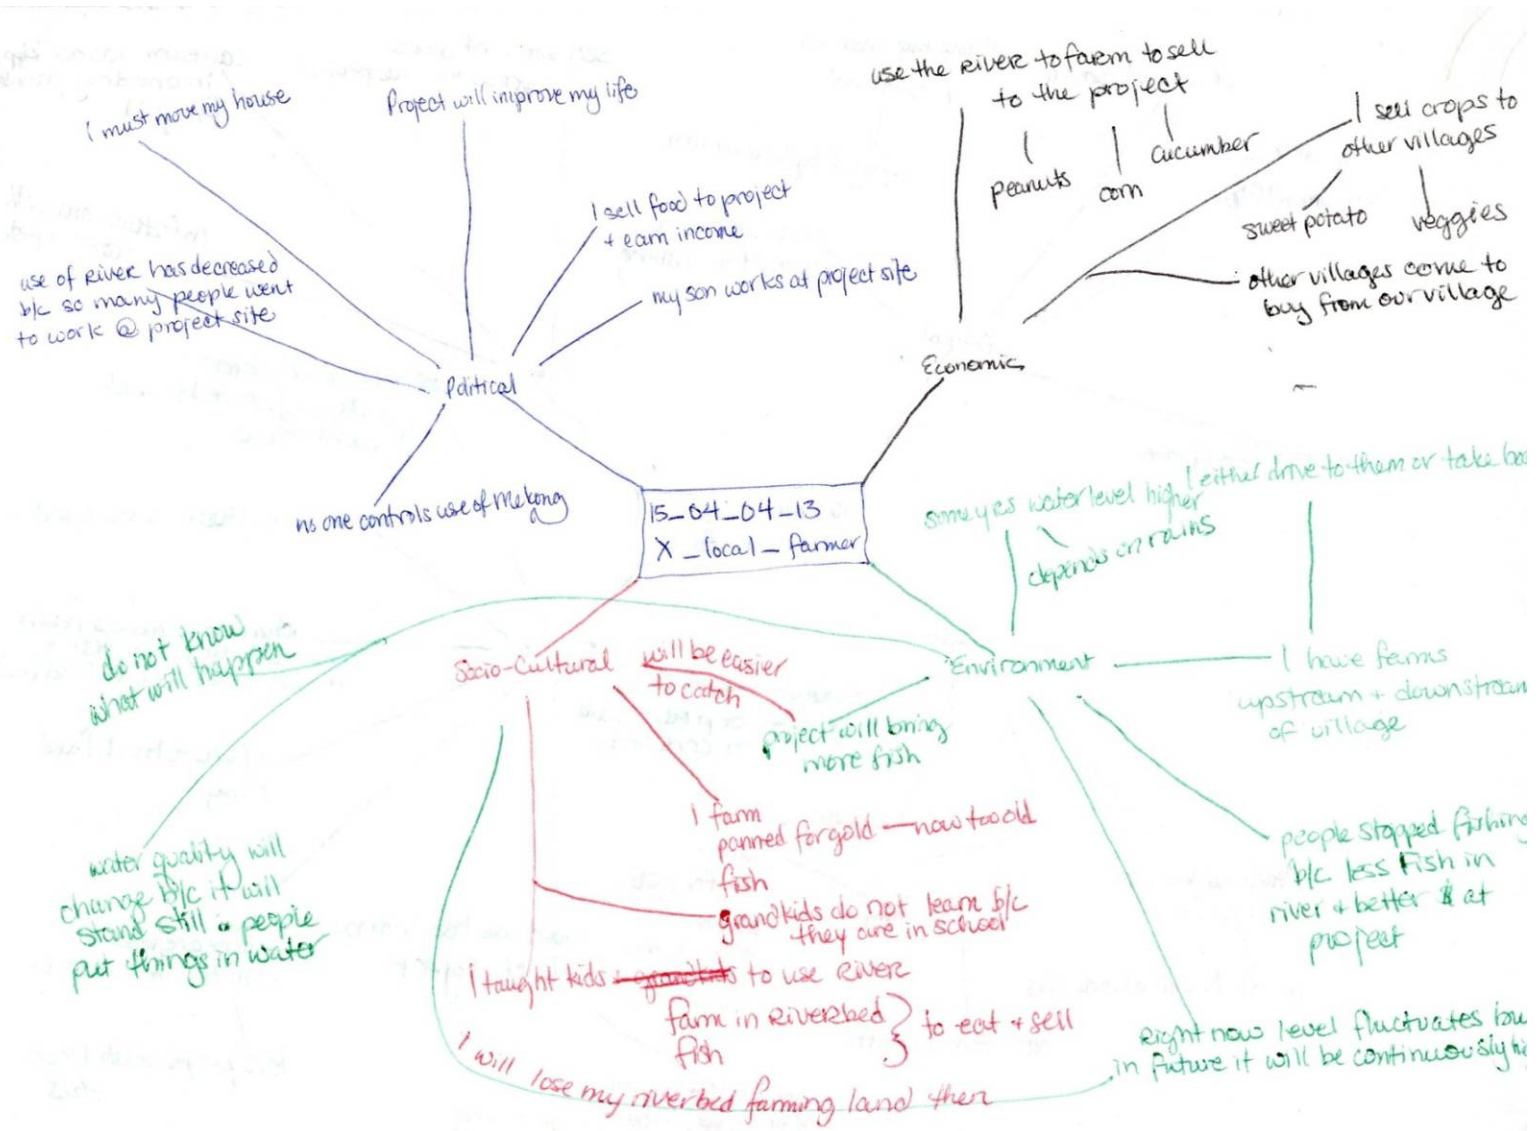 I must move my house
Project will improve my life
I sell food to project
+ earn income
my son works at project site
use of River has decreased
b/c so many people went
to work @ project site
Political
no one controls use of Mekong
use the River to farm to sell
to the project
peanuts
corn
cucumber
I sell crops to
other villages
sweet potato
veggies
other villages come to
buy from our village
Economic
15_04_04_13
X_local_farmer
some yrs water level higher
depends on rains
I either drive to them or take
Environment
I have farms
upstream + downstream
of village
people stopped fishing
b/c less fish in
river + better $ at
project
Right now level fluctuates
in future it will be continuously
project will bring
more fish
will be easier
to catch
do not know
what will happen
water quality will
change b/c it will
stand still & people
put things in water
Socio-Cultural
I farm
panned for gold — now too old
fish
grandkids do not learn b/c
they are in school
I taught kids + grandkids to use River
farm in Riverbed } to eat + sell
fish
I will lose my riverbed farming land then